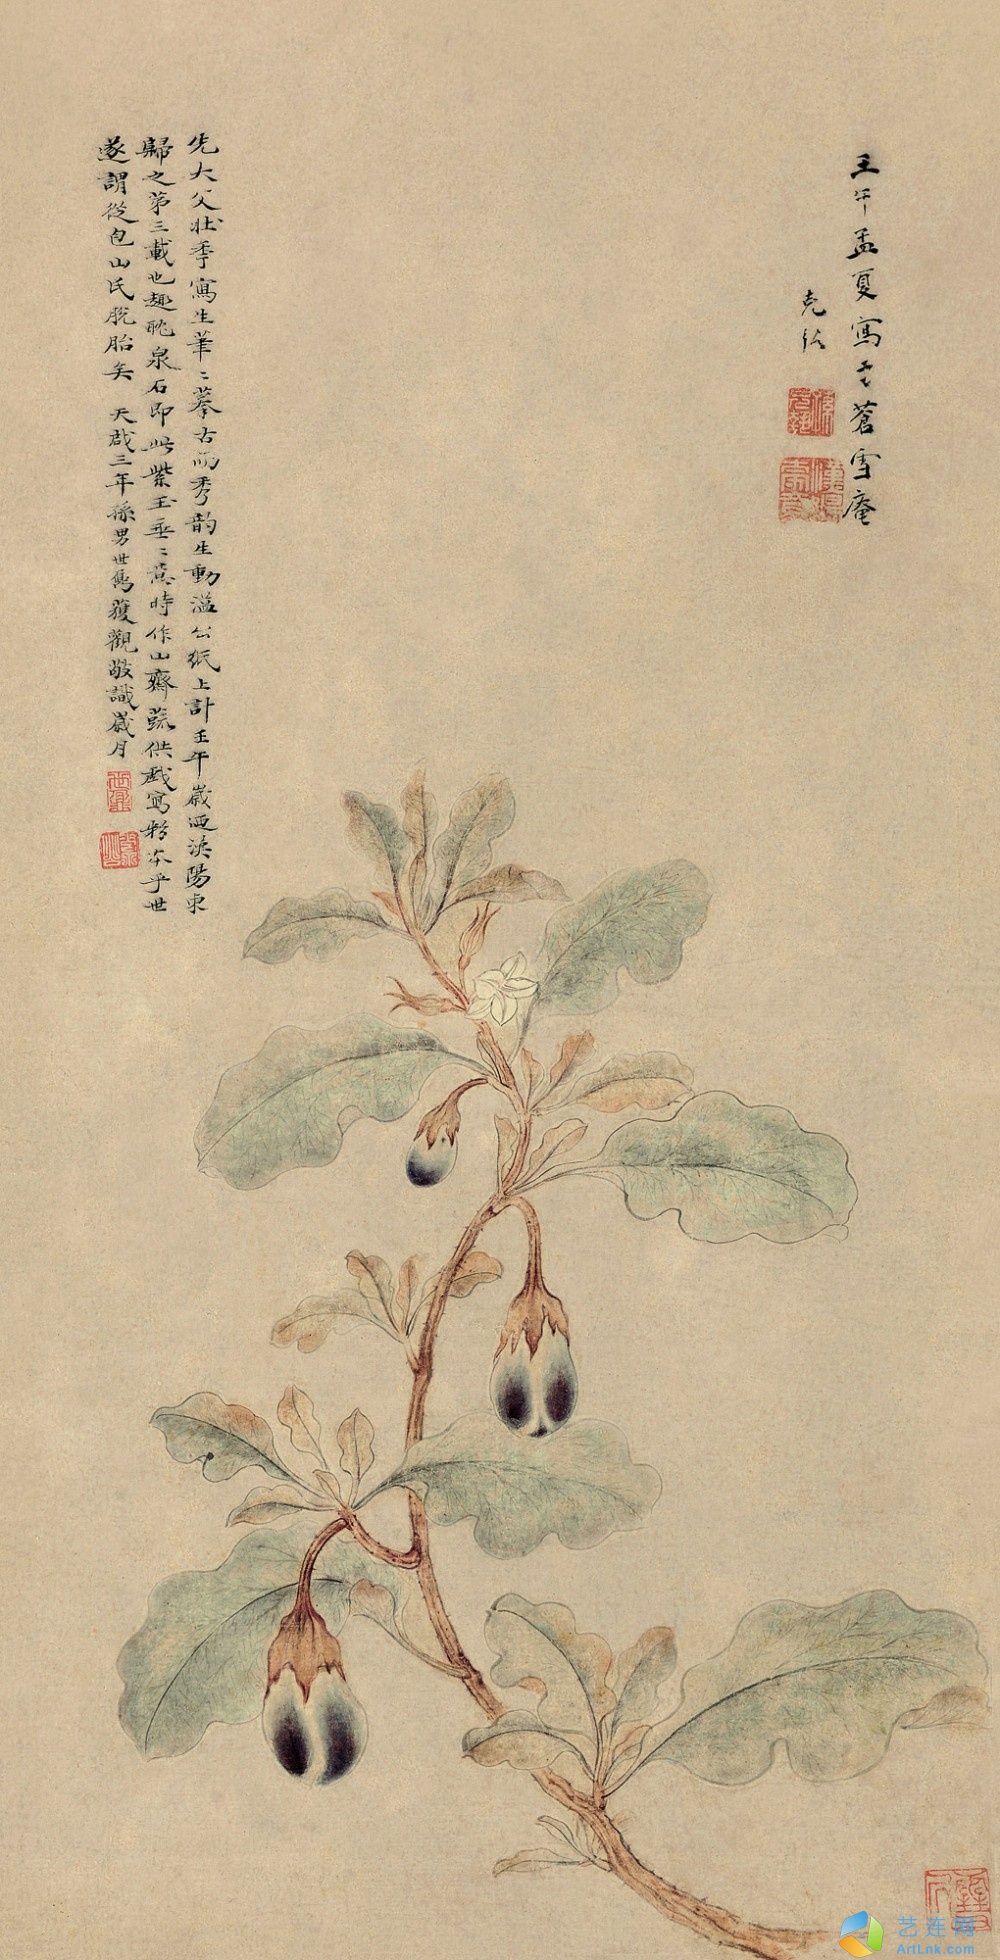 壬午孟夏寫於蒼雪庵
克弘
先大父壯季寫生筆〻摹古而秀韵生動溢公紙上計壬午歲洒漢陽東
歸之第三載也趣耽泉石即此紫玉垂〻蓋時作山齋蔬供戲寫粉本乎世
遂謂從包山氏脫胎矣 天啟三年孫男世雋獲觀敬識歲月
艺连网
ArtLnk.com